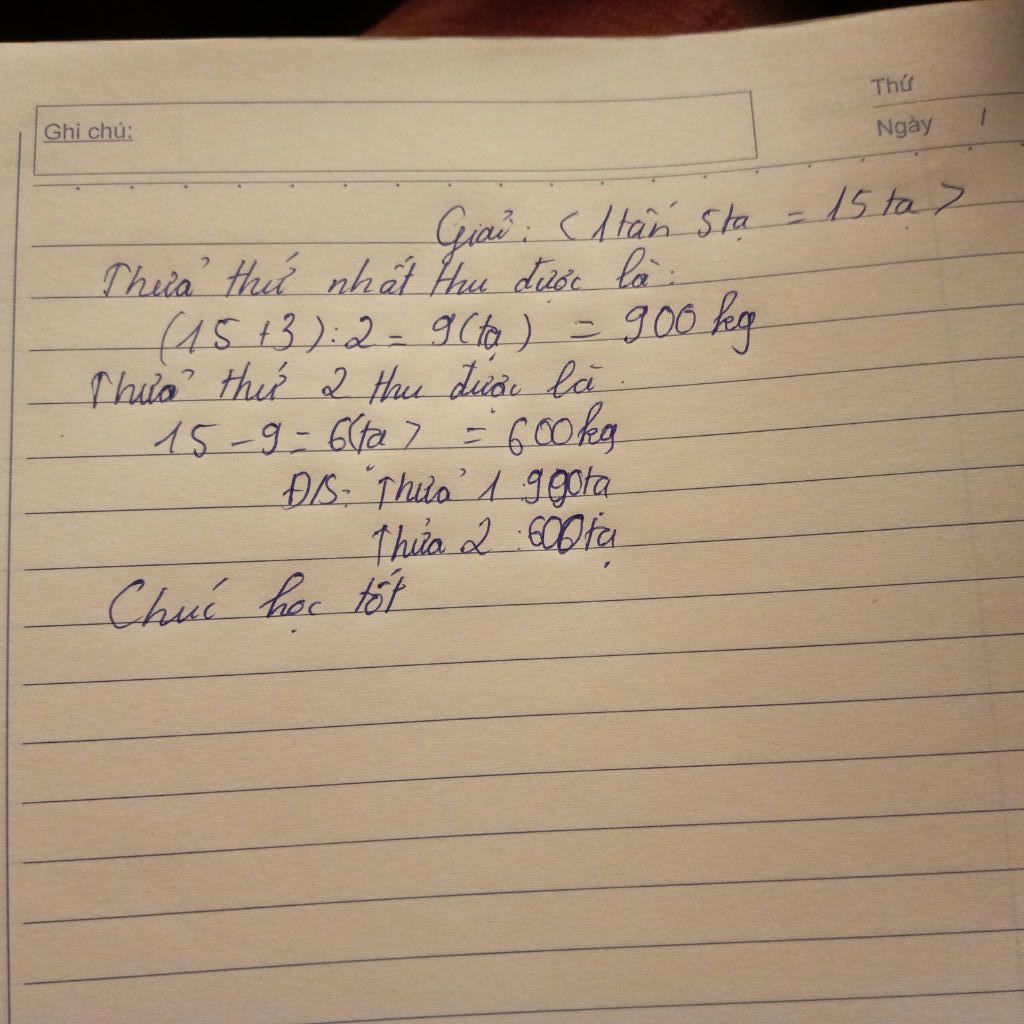 Thứ
Ghi chú:
Ngày
Giải: <1tấn 5tạ = 15 tạ>
Thửa thứ nhất thu được là:
(15 + 3) : 2 = 9(tạ) = 900 kg
Thửa thứ 2 thu được là
15 - 9 = 6(tạ) = 600kg
Đ/S: Thửa 1 : 900tạ
Thửa 2 : 600tạ
Chúc học tốt